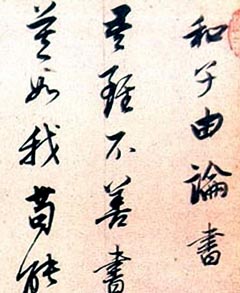 和子由論書
吾雖不善書
莫如我苟能